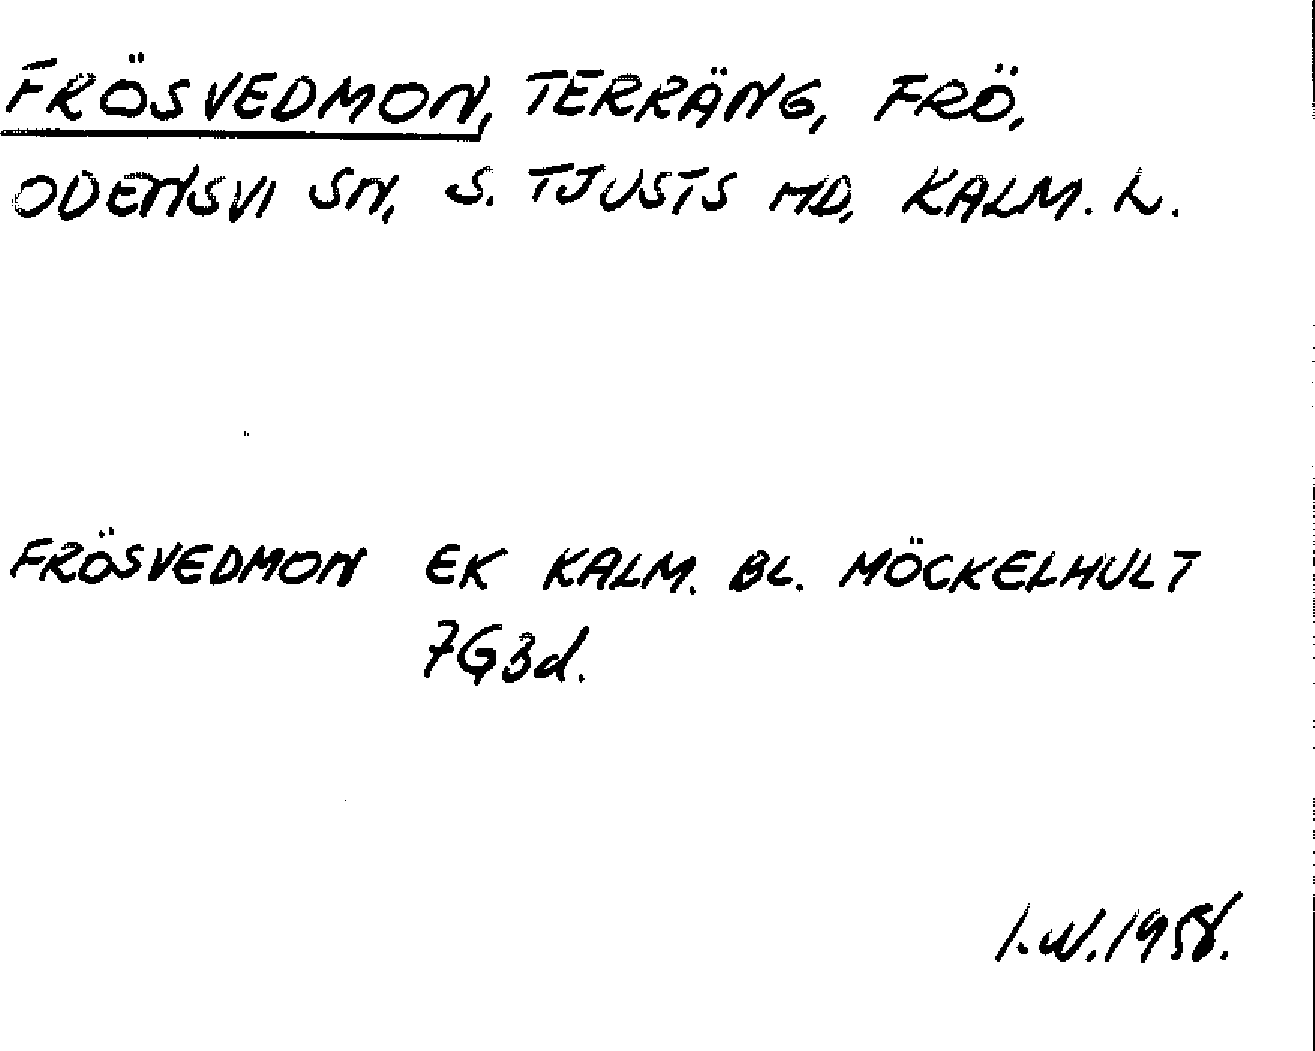 FRÖSVEDMON, TERRÄNG, FRÖ,
ODENSVI SN, S. TJUSTS MD, KALM. L.
FRÖSVEDMON EK KALM. BL. MÖCKELHULT
7G3d.
I.N. 1958.